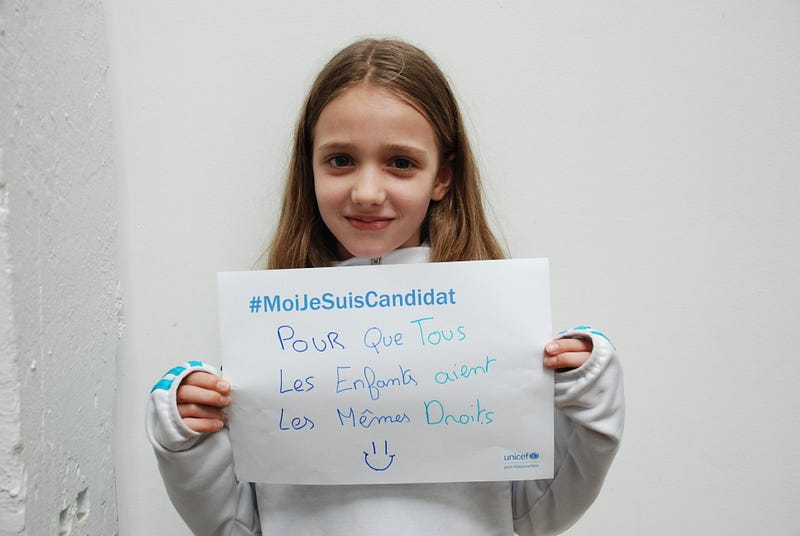 #MoiJeSuisCandidat
Pour Que Tous
Les Enfants aient
Les Mêmes Droits
unicef